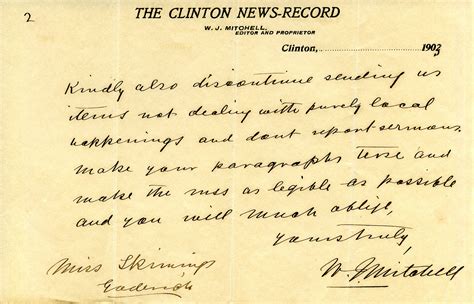 2
THE CLINTON NEWS-RECORD
W. J. MITCHELL,
EDITOR AND PROPRIETOR
Clinton, 1903
Kindly also discontinue sending us
items not dealing with purely local
happenings and dont report sermons.
make your paragraphs terse and
make the mss as legible as possible
and you will much oblige,
yours truly,
W. J. Mitchell
Miss Skimings
Goderich